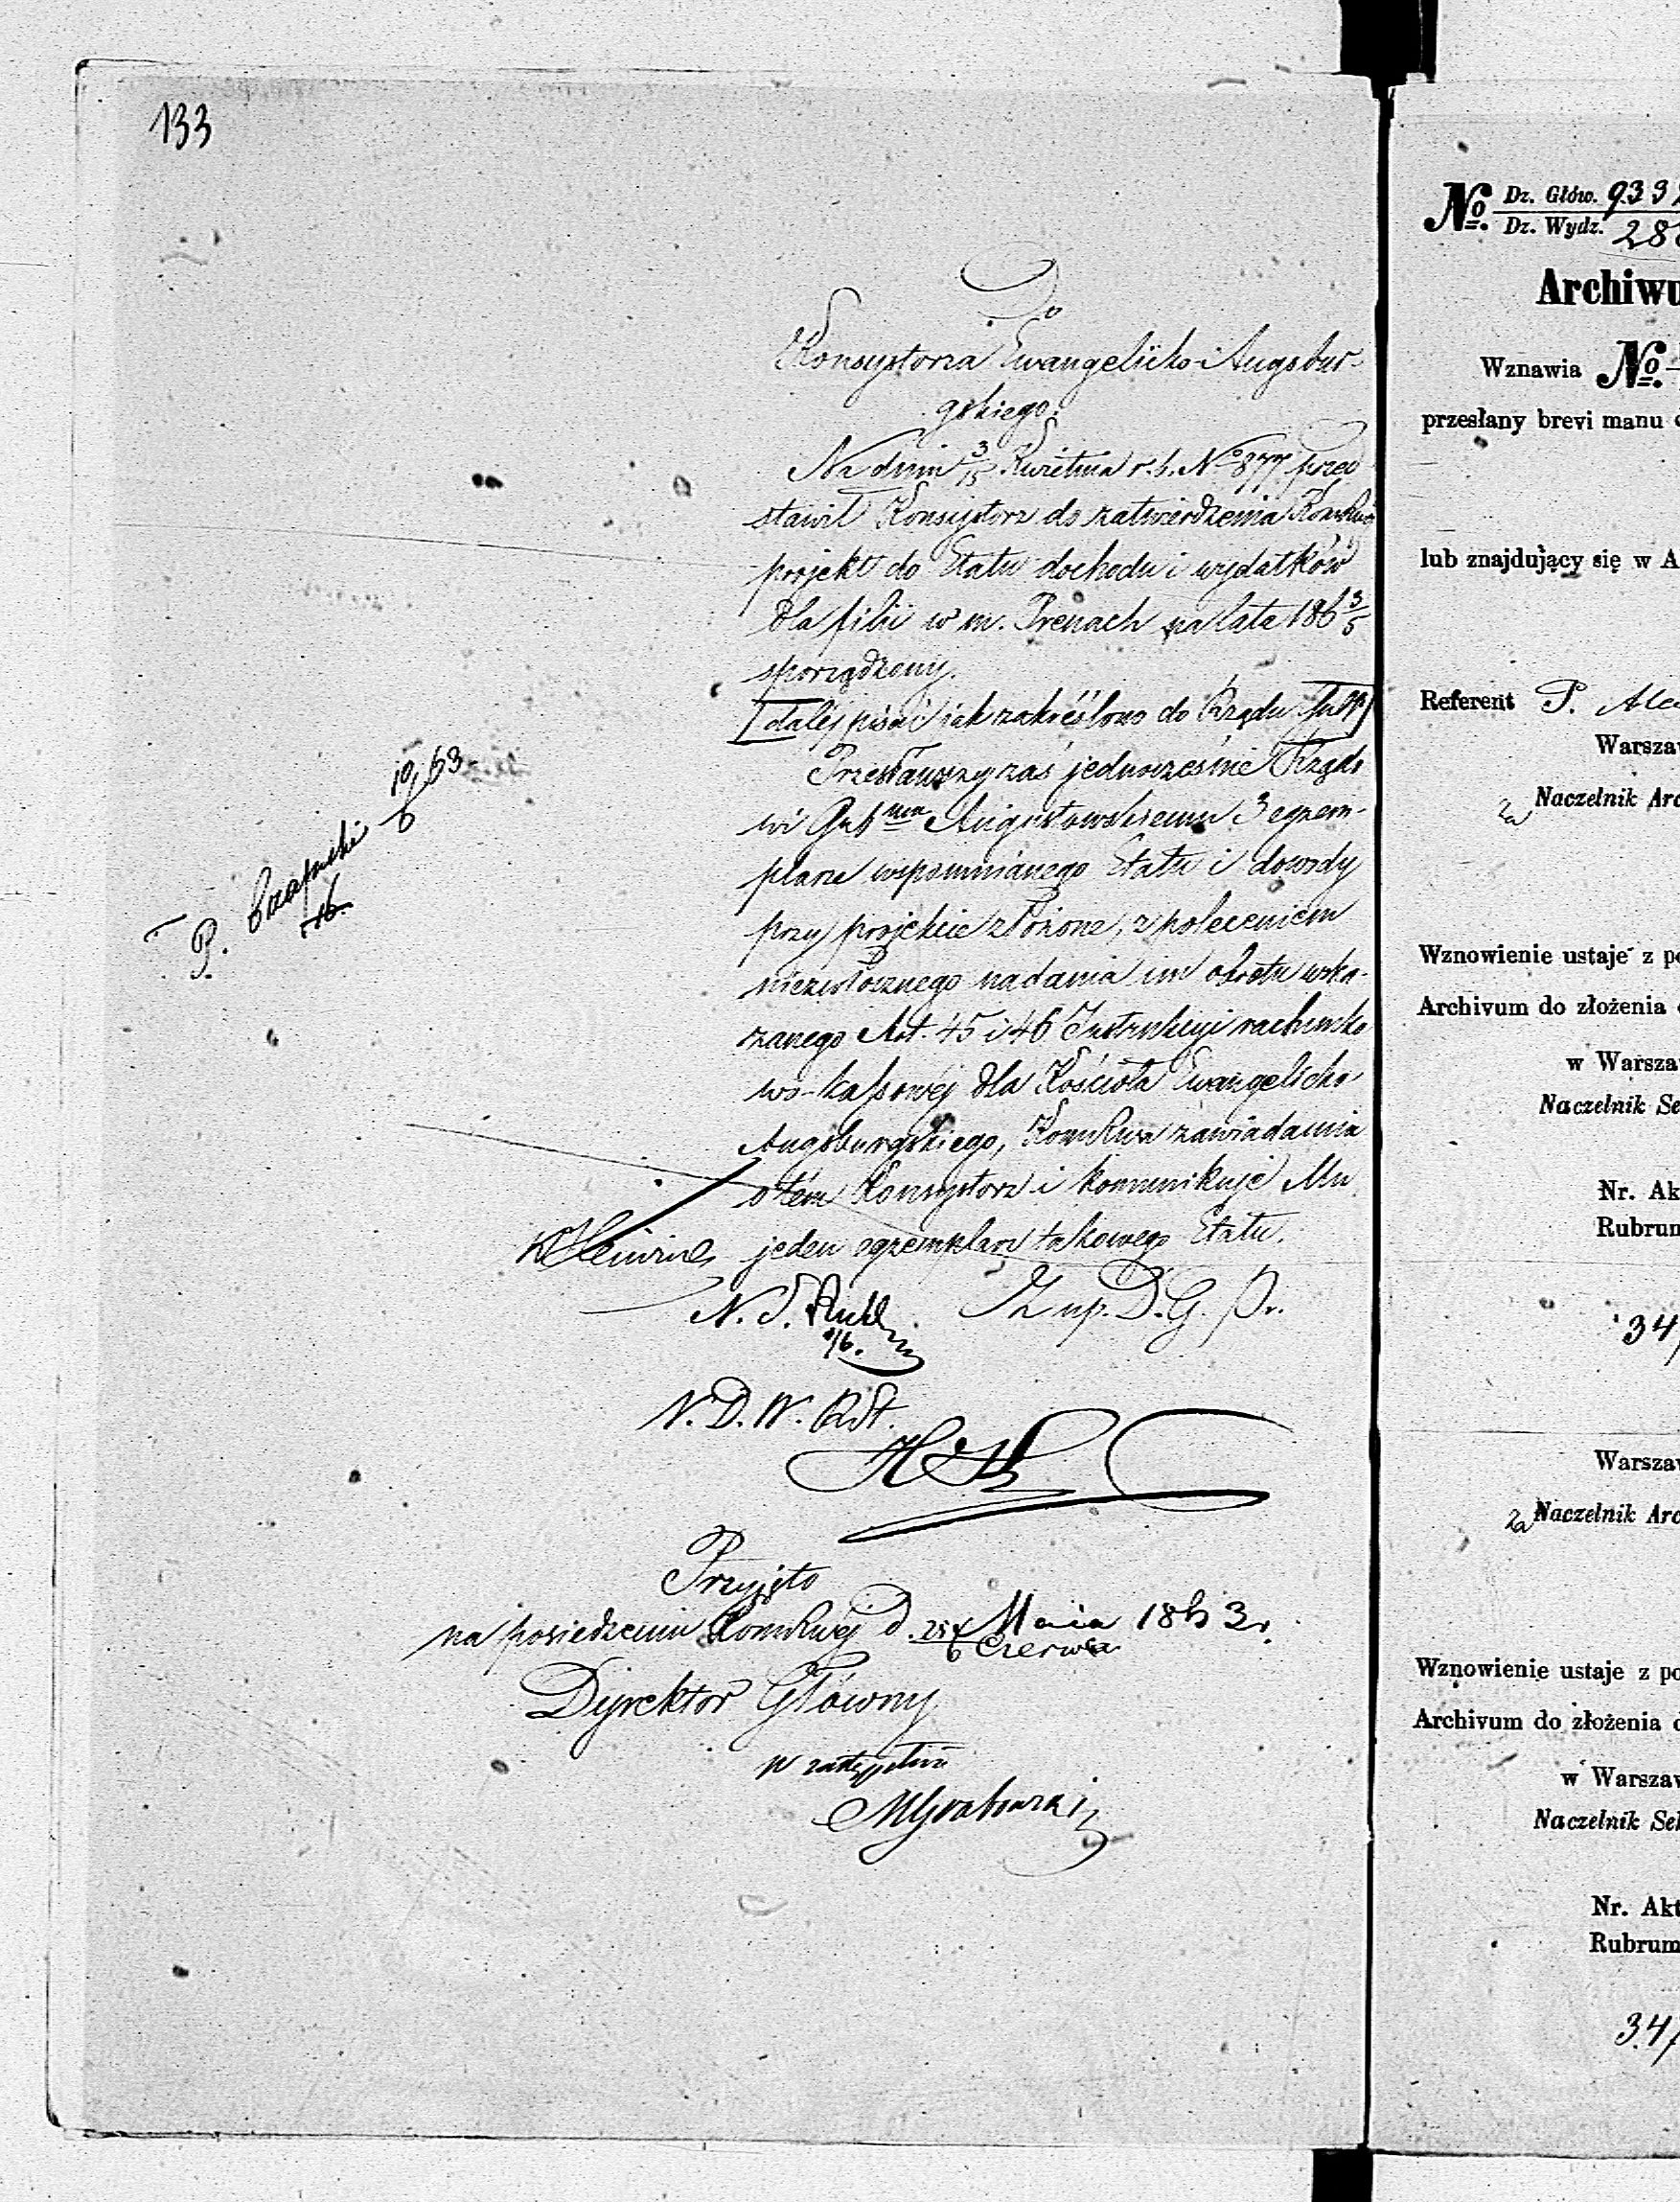 133
Do
Konsystorza Ewangelicko-Augsbur-
gskiego.
Na dniu 3/15 Kwietnia r. b. No 877 przed
stawił Konsystorz do zatwierdzenia
projekt do Etatu dochodu i wydatków
dla filii w m. Prenach na lata 186 3/5
sporządzony.
[dalej pisać jak zakréślono do Rządu Gub]
Przesławszy zaś jednocześnie Rządo
wi Gubnmu Augustowskiemu 3 egzem-
plarze wspomnianego Etatu i dowody
przy projekcie złożone, z poleceniem
niezwłocznego nadania im obrotu wska-
zanego Art. 45 i 46 Instrukcyi rachunko
wo-kassowéj dla Kościoła Ewangelicko-
Augsburgskiego, KomRwa zawiadamia
o tém Konsystorz i kommunikuje Mu
jeden egzemplarz takowego Etatu.
Z up. D. G. Pr.
N. S.
N. D. W.
P. 10/6 63
Przyjęto
na posiedzeniu KomRwéj d. 25/6 Maia 1863 r.
Czerwca
Dyrektor Główny
w zastępstwie
No. Dz. Głów. 933
Dz. Wydz. 28
Archiwu
Wznawia No.
przesłany brevi manu
lub znajdujący się w A
Referent P. Ale
Warsza
za Naczelnik Arc
Wznowienie ustaje z po
Archivum do złożenia
w Warsza
Naczelnik Se
Nr. Ak
Rubrum
34/
Warszaw
za Naczelnik Arc
Wznowienie ustaje z po
Archivum do złożenia
w Warszaw
Naczelnik Sek
Nr. Akt
Rubrum
34/